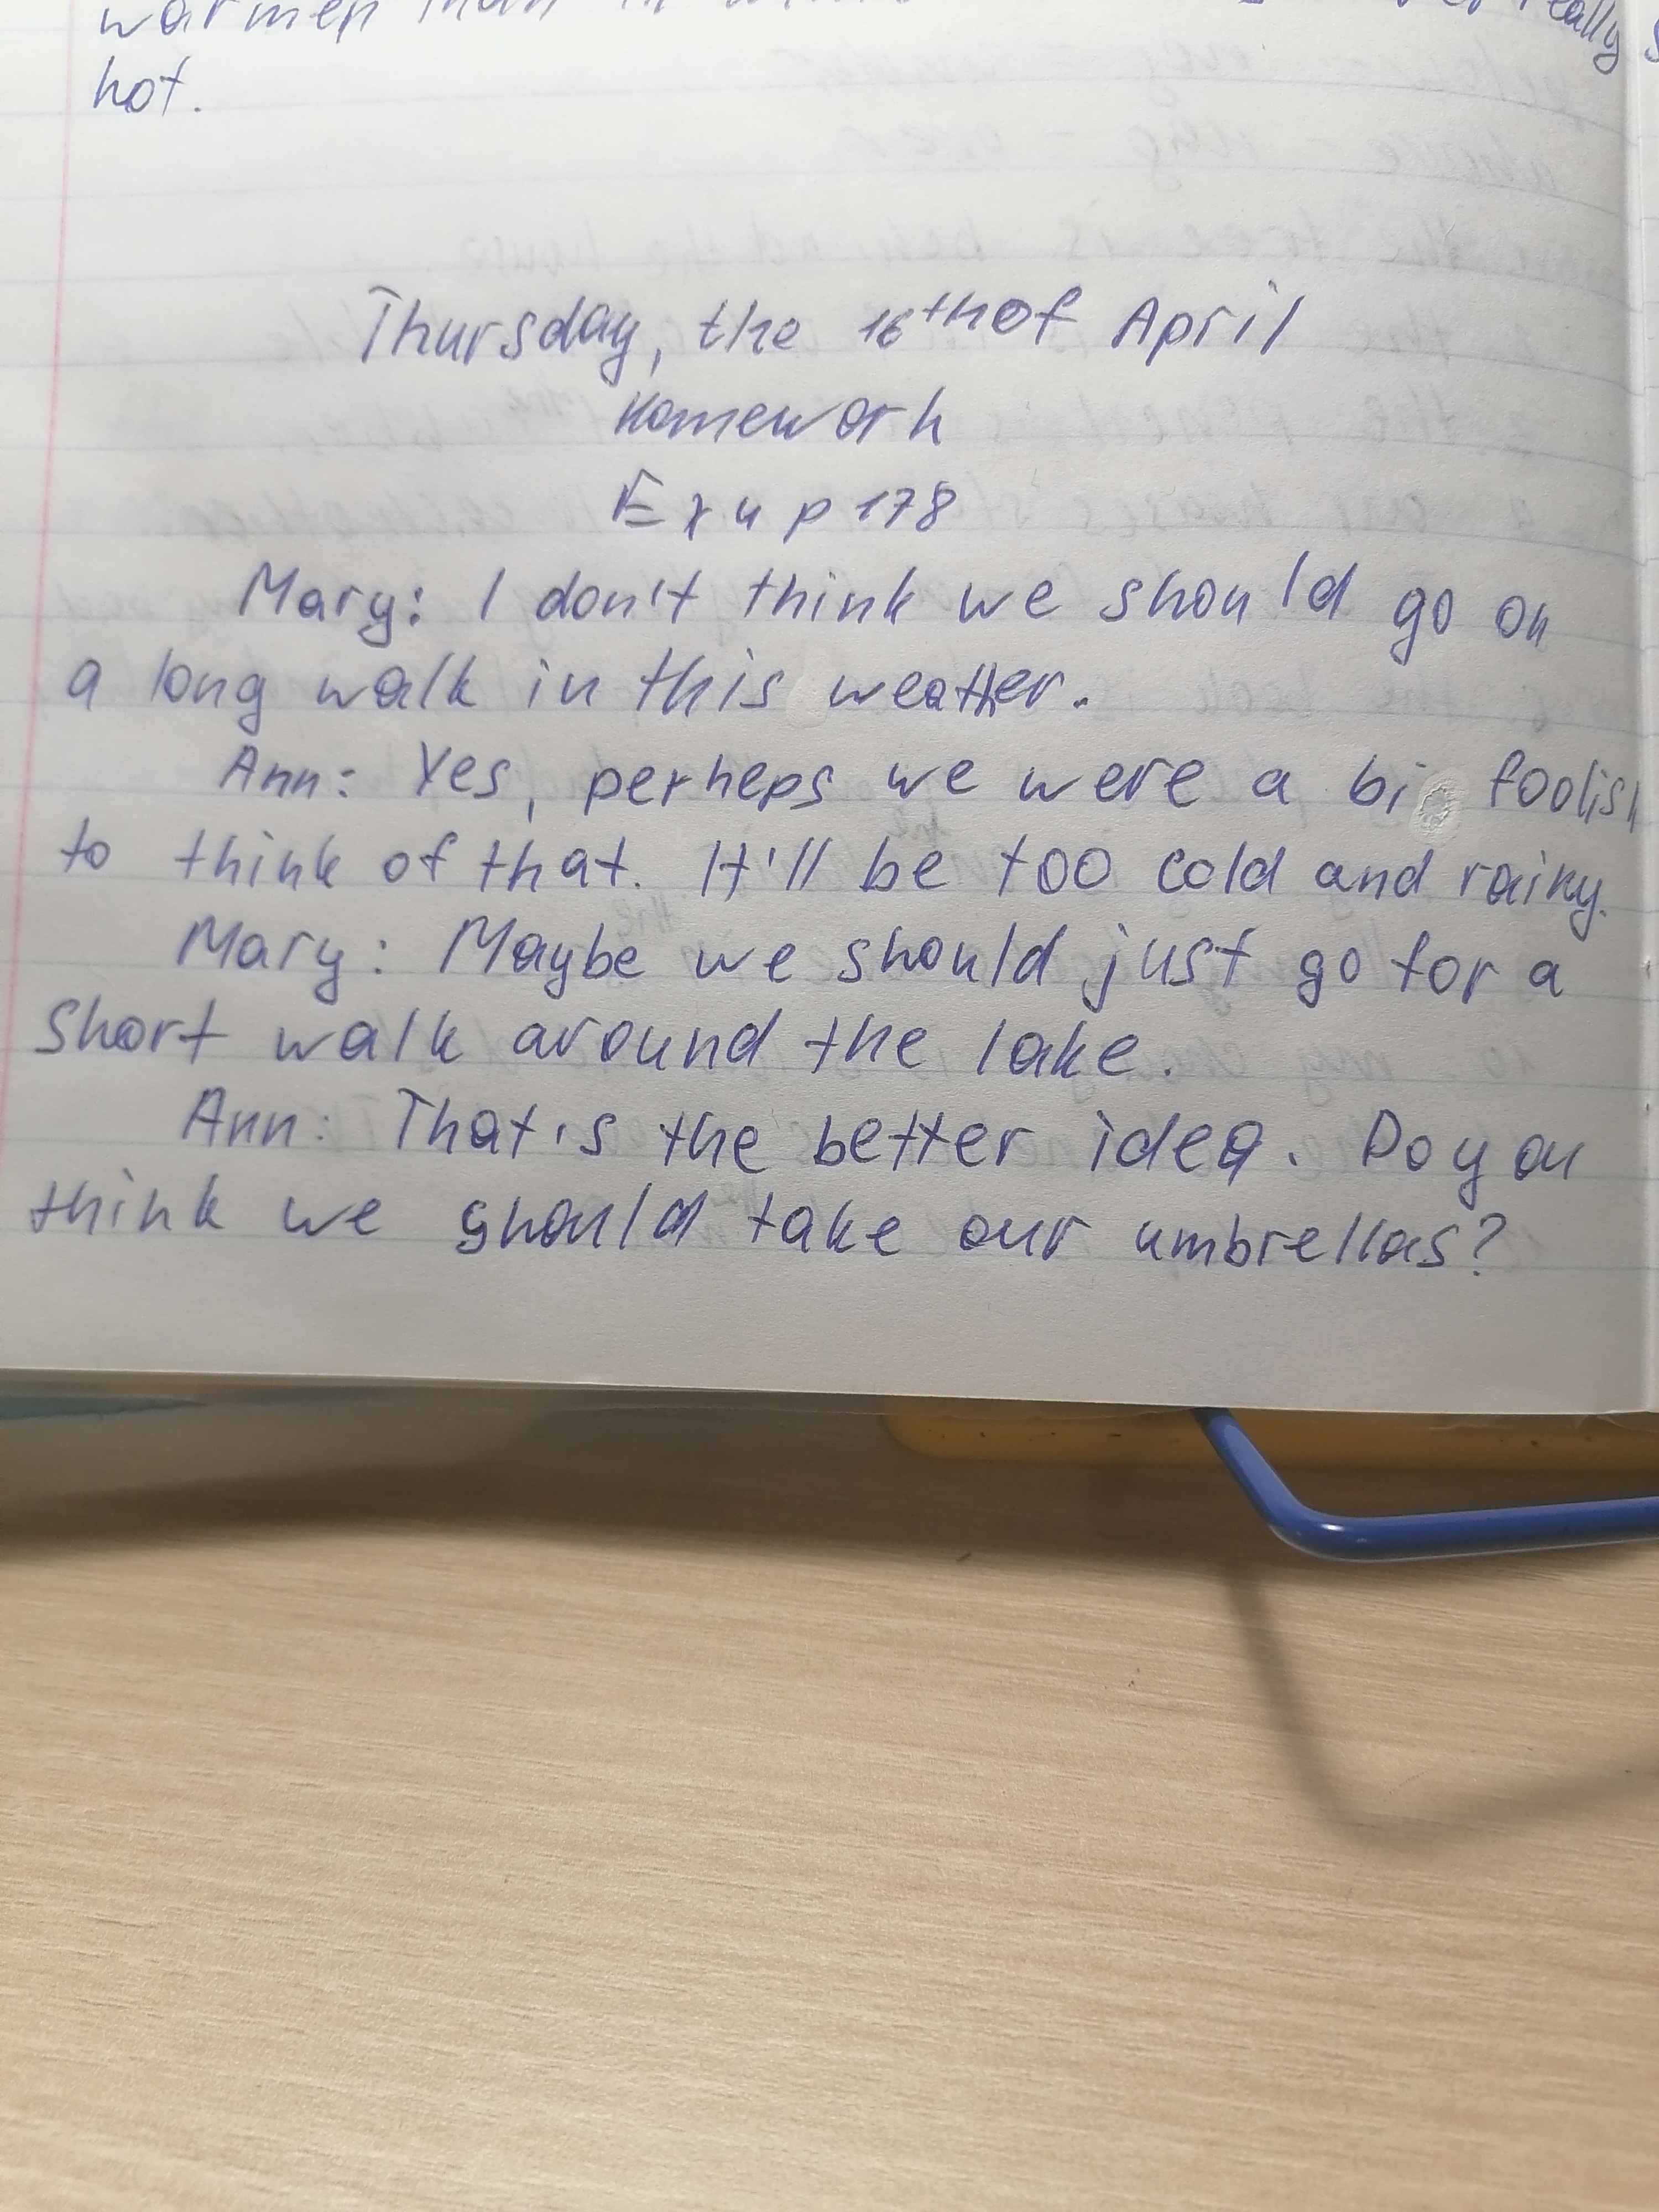 hot.
Thursday, the 16th of April
Homework
Ex 4 p 178
Mary: I don't think we should go on
a long walk in this weather.
Ann: Yes, perheps we were a bi foolish
to think of that. It'll be too cold and rainy.
Mary: Maybe we should just go for a
short walk around the lake.
Ann: That's the better idea. Do you
think we should take our umbrellas?